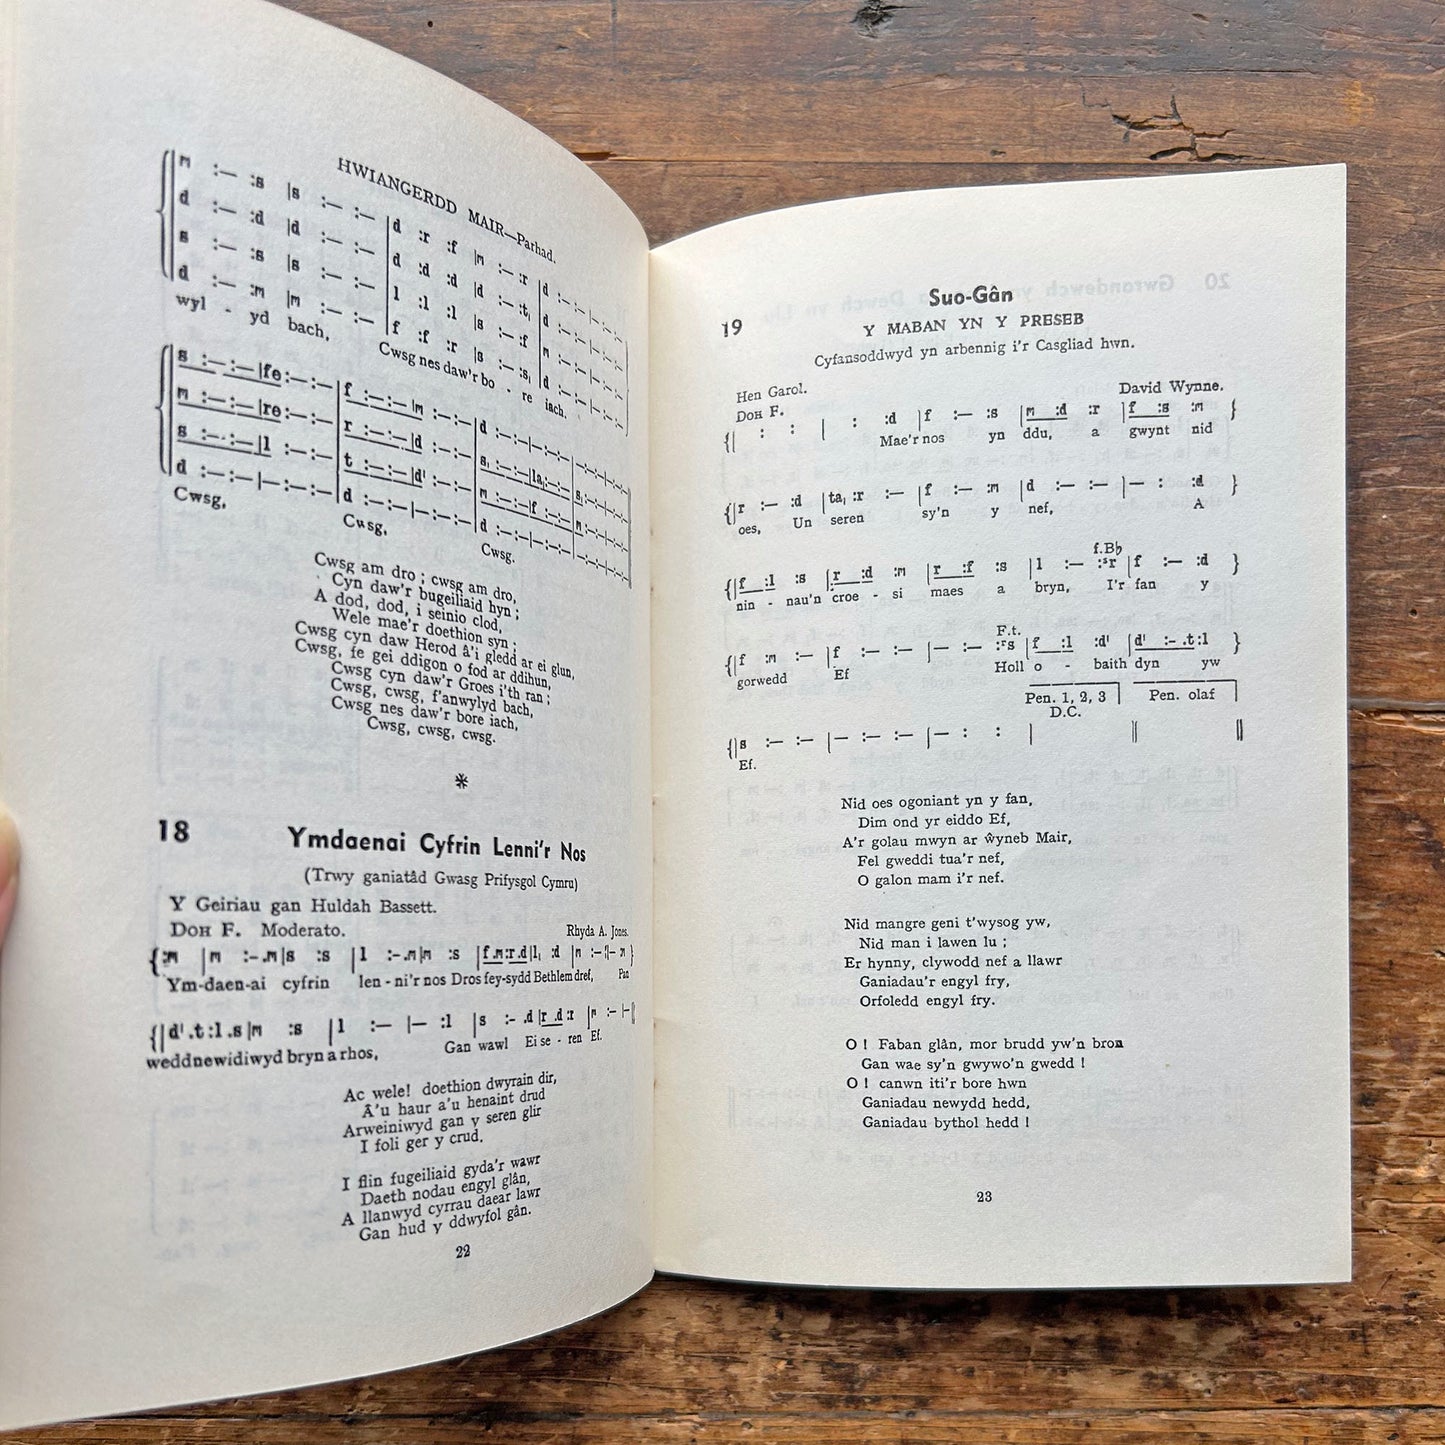 HWIANGERDD MAIR—Parhad.
m :— :s |s :— :— |d :r :f |m :— :r |d :— :— |— :— :—
d :— :d |d :— :— |d :d :d |d :— :t, |d :— :— |— :— :—
s :— :s |s :— :— |l :l :l |s :— :f |m :— :— |— :— :—
d :— :m |m :— :— |f :f :r |s :— :s, |d :— :— |— :— :—
wyl - yd bach, Cwsg nes daw'r bo - re iach.
s :— :— |fe :— :— |f :— :— |m :— :— |d :— :— |— :— :— |— :— :— |— :— :—
m :— :— |re :— :— |r :— :— |d :— :— |s, :— :— |la, :— :— |s, :— :— |— :— :—
s :— :— |l :— :— |t :— :— |d' :— :— |m :— :— |f :— :— |m :— :— |— :— :—
d :— :— |— :— :— |d :— :— |— :— :— |d :— :— |— :— :— |— :— :— |— :— :—
Cwsg, Cwsg, Cwsg.
Cwsg am dro ; cwsg am dro,
Cyn daw'r bugeiliaid hyn ;
A dod, dod, i seinio clod,
Wele mae'r doethion syn ;
Cwsg cyn daw Herod â'i gledd ar ei glun,
Cwsg, fe gei ddigon o fod ar ddihun,
Cwsg cyn daw'r Groes i'th ran ;
Cwsg, cwsg, f'anwylyd bach,
Cwsg nes daw'r bore iach,
Cwsg, cwsg, cwsg.
*
18 Ymdaenai Cyfrin Lenni'r Nos
(Trwy ganiatâd Gwasg Prifysgol Cymru)
Y Geiriau gan Huldah Bassett.
DOH F. Moderato. Rhyda A. Jones.
{:m |m :-.m|s :s |l :-.m|m :s |f.m:r.d|l, :d |m :—|— :m}
Ym-daen-ai cyfrin len-ni'r nos Dros fey-sydd Bethlem dref, Pan
{|d'.t:l.s|m :s |l :— |— :l |s :-.d|r.d:r |m :—|—||
weddnewidiwyd bryn a rhos, Gan wawl Ei se - ren Ef.
Ac wele! doethion dwyrain dir,
Â'u haur a'u henaint drud
Arweiniwyd gan y seren glir
I foli ger y crud.
I flin fugeiliaid gyda'r wawr
Daeth nodau engyl glân,
A llanwyd cyrrau daear lawr
Gan hud y ddwyfol gân.
22
Suo-Gân
19 Y MABAN YN Y PRESEB
Cyfansoddwyd yn arbennig i'r Casgliad hwn.
Hen Garol. David Wynne.
DOH F.
{| : : | : :d |f :— :s |m :d :r |f :s :m }
Mae'r nos yn ddu, a gwynt nid
{|r :— :d |ta, :r :— |f :— :m |d :— :— |— : :d }
oes, Un seren sy'n y nef, A
f.B♭
{|f :l :s |r :d :m |r :f :s |l :— :ˢr |f :— :d }
nin - nau'n croe - si maes a bryn, I'r fan y
F.t.
{|f :m :— |f :— :— |— :— :ʳs |f :l :d' |d' :-.t:l }
gorwedd Ef Holl o - baith dyn yw
Pen. 1, 2, 3 Pen. olaf
D.C.
{|s :— :— |— :— :— |— : : | || ||
Ef.
Nid oes ogoniant yn y fan,
Dim ond yr eiddo Ef,
A'r golau mwyn ar ŵyneb Mair,
Fel gweddi tua'r nef,
O galon mam i'r nef.
Nid mangre geni t'wysog yw,
Nid man i lawen lu ;
Er hynny, clywodd nef a llawr
Ganiadau'r engyl fry,
Orfoledd engyl fry.
O ! Faban glân, mor brudd yw'n bron
Gan wae sy'n gwywo'n gwedd !
O ! canwn iti'r bore hwn
Ganiadau newydd hedd,
Ganiadau bythol hedd !
23